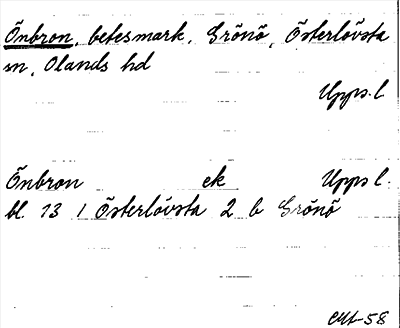 Önbron, betesmark, Grönö, Österlövsta
sn, Olands hd
Upps. l
Önbron ek Upps l.
bl. 13 1 Österlövsta 2 b Grönö
-58